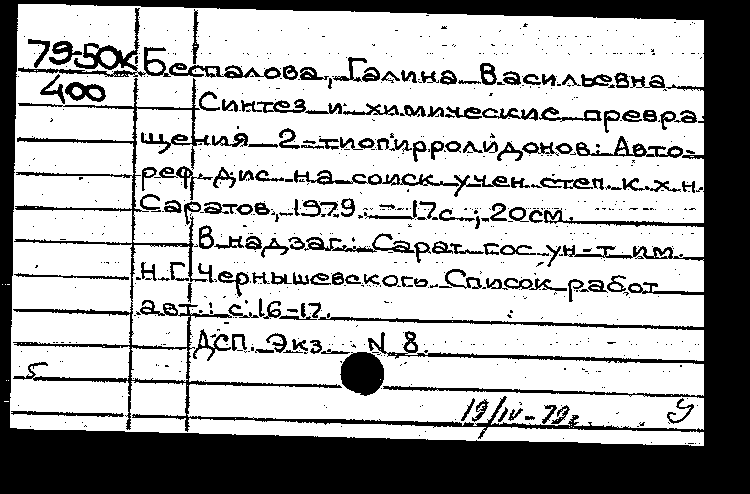 79-50к Беспалова, Галина Васильевна
400 Синтез и химические превра
щения 2-тиопирролидонов: Авто-
реф. дис. на соиск. учен. степ. к.х.н.
Саратов, 1979. - 17с.; 20см.
В надзаг.: Сарат. гос. ун-т им.
Н.Г. Чернышевского. Список работ
авт.: с.16-17.
ДСП. Экз. N 8.
5
19/IV-79г. У